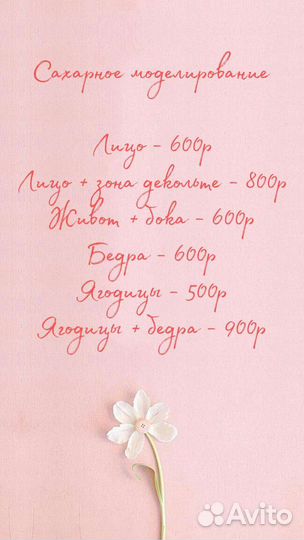 Сахарное моделирование
Лицо - 600р
Лицо + зона декольте - 800р
Живот + бока - 600р
Бедра - 600р
Ягодицы - 500р
Ягодицы + бедра - 900р
Avito